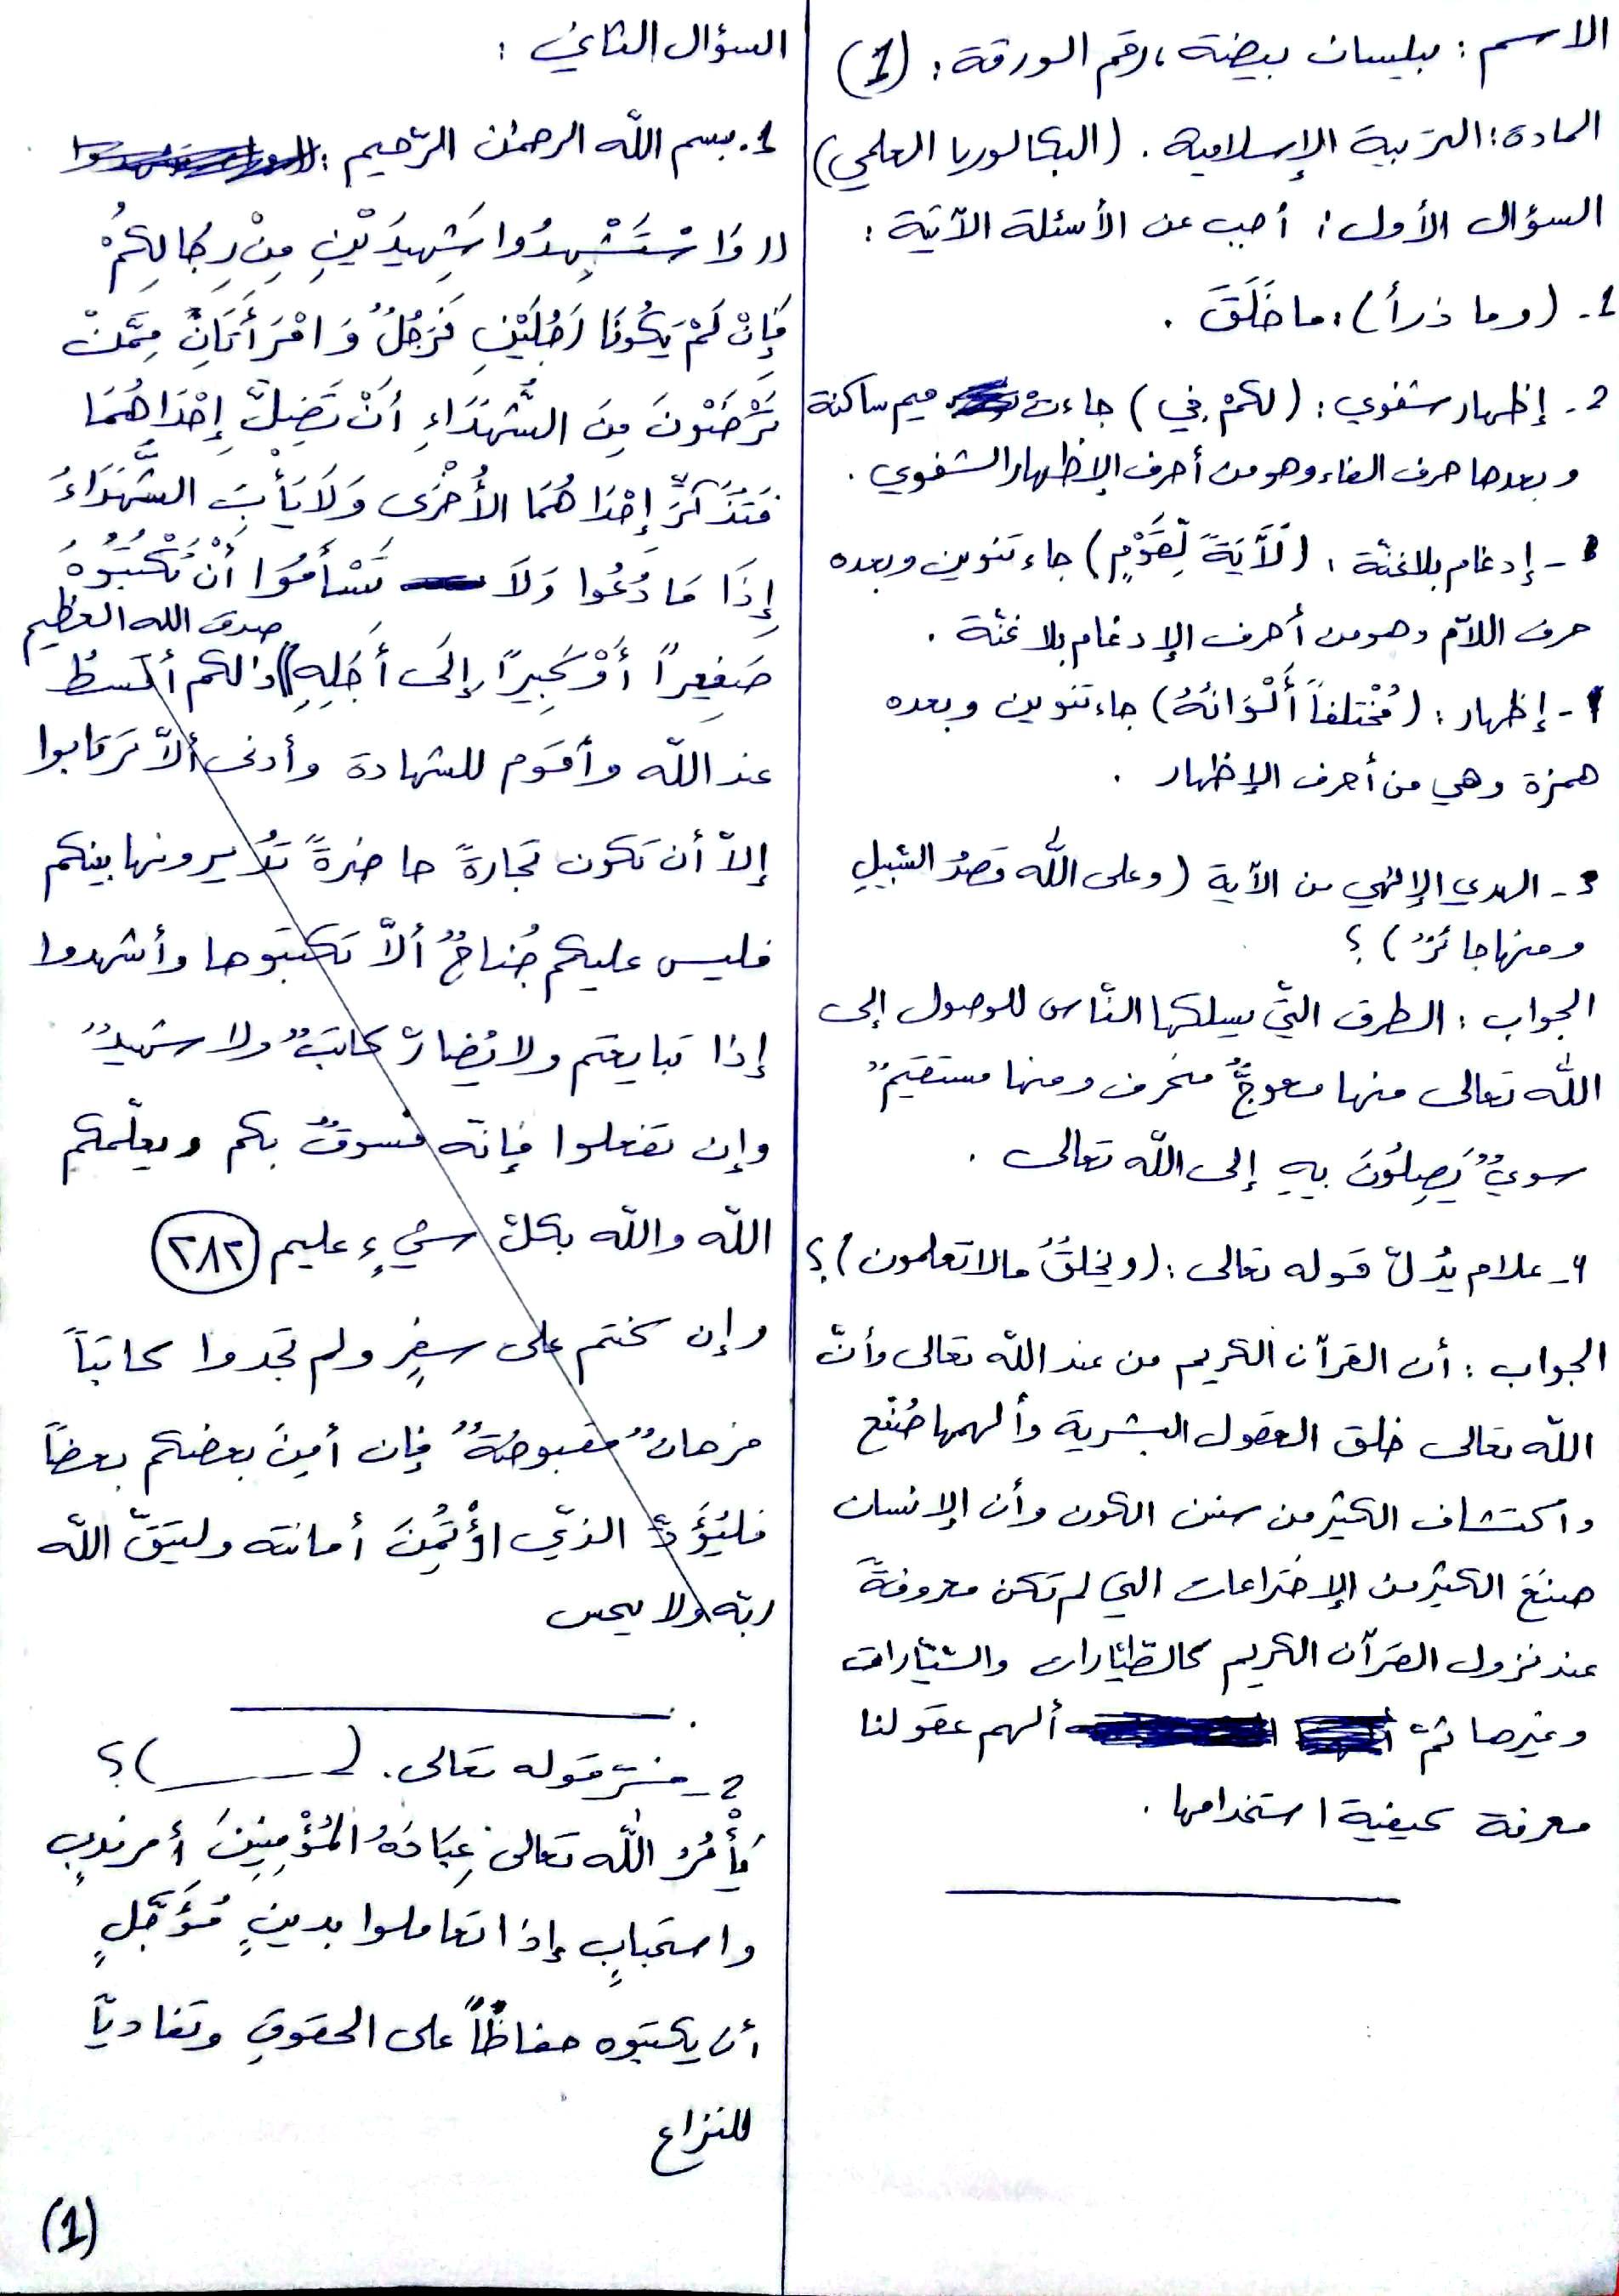 الاسم : بيلسان بيضة ، رقم الورقة : (1)
المادة : التربية الإسلامية . (البكالوريا العلمي)
السؤال الأول : أجب عن الأسئلة الآتية :
1- (وما ذرأ) : ما خَلَقَ .
2- إظهار شفوي : (لكمْ في) جاءتْ ميم ساكنة
وبعدها حرف الفاء وهو من أحرف الإظهار الشفوي .
- إدغام بلا غنّة : (لَآيَةً لِقَوْمٍ) جاء تنوين وبعده
حرف اللاّم وهو من أحرف الإدغام بلا غنّة .
- إظهار : (مُخْتلفاً أَلْوَانُهُ) جاء تنوين وبعده
همزة وهي من أحرف الإظهار .
3- الهدي الإلهي من الآية (وعلى اللّه قصدُ السّبيلِ
ومنها جائرٌ) ؟
الجواب : الطرق التّي يسلكها النّاس للوصول إلى
اللّه تعالى منها معوجٌّ منحرف ومنها مستقيمٌ
سويٌّ يَصِلُونَ بِهِ إلى اللّه تعالى .
4- علام يدُلّ قوله تعالى : (ويخلقُ ما لا تعلمون) ؟
الجواب : أن القرآن الكريم من عند اللّه تعالى وأنّ
اللّه تعالى خلق العقول البشرية وألهمها صُنْع
واكتشاف الكثير من سنن الكون وأن الإنسان
صنَعَ الكثير من الإختراعات التي لم تكن معروفةً
عند نزول القرآن الكريم كالطّائيارات والسّيّارات
وغيرها ثمّ ألهم عقولنا
معرفة كيفية استخدامها .
السؤال الثاني :
1. بسم اللّه الرحمٰن الرّحيم :
((وَاسْتَشْهِدُوا شَهِيدَيْنِ مِنْ رِجَالِكُمْ
فَإِنْ لَمْ يَكُونَا رَجُلَيْنِ فَرَجُلٌ وَامْرَأَتَانِ مِمَّنْ
تَرْضَوْنَ مِنَ الشُّهَدَاءِ أَنْ تَضِلَّ إِحْدَاهُمَا
فَتُذَكِّرَ إِحْدَاهُمَا الأُخْرَى وَلَا يَأْبَ الشُّهَدَاءُ
إِذَا مَا دُعُوا وَلَا تَسْأَمُوا أَنْ تَكْتُبُوهُ
صَغِيرًا أَوْ كَبِيرًا إِلَى أَجَلِهِ)) صدق الله العظيم ذالكم أقسطُ
عند اللّه وأقوم للشهادة وأدنى ألاّ ترتابوا
إلاّ أن تكون تجارةً حاضرةً تُديرونها بينكم
فليس عليكم جُناحٌ ألاّ تكتبوها وأشهدوا
إذا تبايعتم ولا يُضارّ كاتبٌ ولا شهيدٌ
وإن تفعلوا فإنّه فسوقٌ بكم ويعلّمكم
اللّه واللّه بكلّ شيءٍ عليم (٢٨٢)
وإن كنتم على سفرٍ ولم تجدوا كاتباً
فرهانٌ مقبوضةٌ فإن أمِنَ بعضكم بعضاً
فليُؤَدِّ الذّي اؤْتُمِنَ أمانته وليتقّ اللّه
ربّه ولا يبخس
2- فسّر قوله تعالى . (ــــــ) ؟
يَأْمُرُ اللّه تعالى عِبَادَهُ المُؤْمِنِينَ أمر ندبٍ
واستحبابٍ إذا تعاملوا بدينٍ مُؤَجَّلٍ
أن يكتبوه حفاظاً على الحقوقِ وتفادياً
للنزاع
(1)